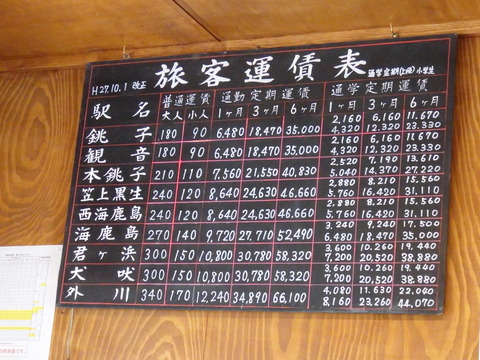 H27.10.1 改正 旅客運賃表 通学定期(上段)小学生
駅名 普通運賃 通勤定期運賃 通学定期運賃
大人 小人 1ヶ月 3ヶ月 6ヶ月 1ヶ月 3ヶ月 6ヶ月
2,160 6,160 11,670
銚子 180 90 6,480 18,470 35,000 4,320 12,320 23,330
2,160 6,160 11,670
観音 180 90 6,480 18,470 35,000 4,320 12,320 23,330
2,520 7,190 13,610
本銚子 210 110 7,560 21,550 40,830 5,040 14,370 27,220
2,880 8,210 15,560
笠上黒生 240 120 8,640 24,630 46,660 5,760 16,420 31,110
2,880 8,210 15,560
西海鹿島 240 120 8,640 24,630 46,660 5,760 16,420 31,110
3,240 9,240 17,500
海鹿島 270 140 9,720 27,710 52,490 6,480 18,470 35,000
3,600 10,260 19,440
君ヶ浜 300 150 10,800 30,780 58,320 7,200 20,520 38,880
3,600 10,260 19,440
犬吠 300 150 10,800 30,780 58,320 7,200 20,520 38,880
4,080 11,630 22,040
外川 340 170 12,240 34,890 66,100 8,160 23,260 44,070